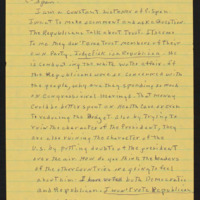 C-Span
I am a constant watcher of C-Span.
I want to make a comment and ask a question.
The Republicans talk about trust. It seems
to me, they don't even trust members of their
own Party. 
He
is conducting the White Water affair. If
the Republicans were as concerned with the
people, why are they spending so much
on Congressional hearings. That money
could be better spent on Health Care or even
to reducing the Budget. Also by trying to
ruin the character of the President, they
are also ruining the character of the
U.S. by putting doubts of the president
over the air. How do you think the leaders
of the other countries are going to feel
about him. I have voted both Democratic
and Republican. I won't vote Republican